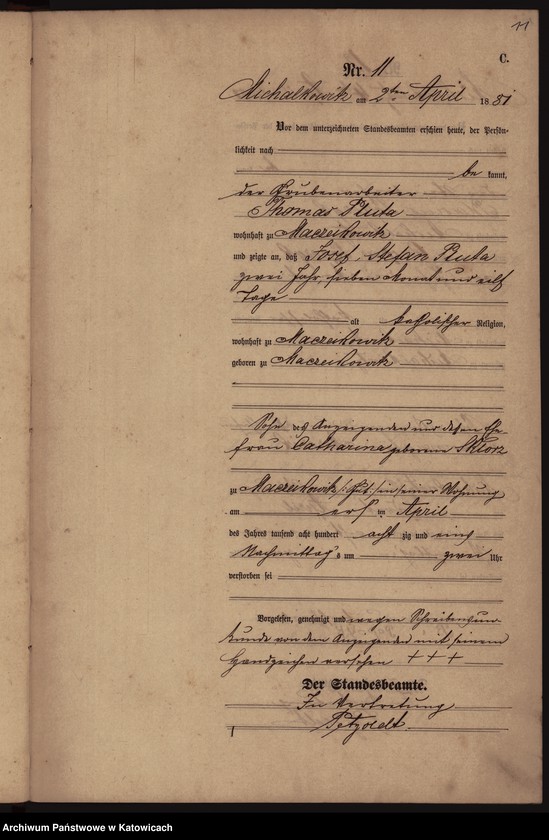 11
C.
Nr. 11
Michalkowik am 2ten April 1881
Vor dem unterzeichneten Standesbeamten erschien heute, der Persön-
lichkeit nach
be kannt,
der Grubenarbeiter
Thomas Pluta
wohnhaft zu Maczeikowik
und zeigte an, daß Josef Stefan Pluta
zwei Jahr, sieben Monat und eilf
Tage
alt katholischer Religion,
wohnhaft zu Maczeikowik
geboren zu Maczeikowik
Sohn des Anzeigenden und dessen Ehe
frau Catharina geborene Sklorz
zu Maczeikowik in seiner Wohnung
am ersten April
des Jahres tausend acht hundert acht zig und eins
Nachmittags um zwei Uhr
verstorben sei
Vorgelesen, genehmigt und wegen Schreibensun-
kunde von dem Anzeigenden mit seinem
Handzeichen versehen +++
Der Standesbeamte.
In Vertretung
Petzoldt
Archiwum Państwowe w Katowicach